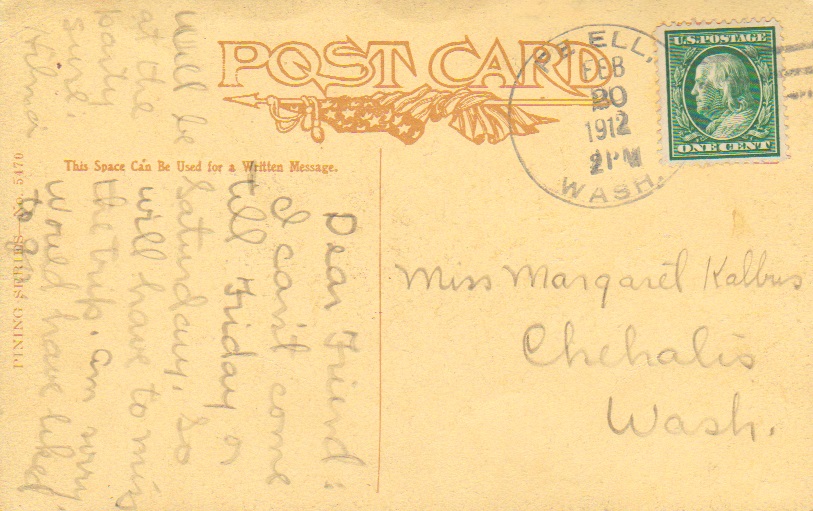 POST CARD
This Space Can Be Used for a Written Message.
PINING SERIES—No. 5470
PE ELL,
FEB
20
1912
2PM
WASH.
U.S. POSTAGE
ONE CENT
Miss Margaret Kalbus
Chehalis
Wash.
Dear Friend:
I can't come
till Friday or
Saturday, so
will have to miss
the trip. Am sorry.
Would have liked
to go
will be
at the
party
sure.
Hilma